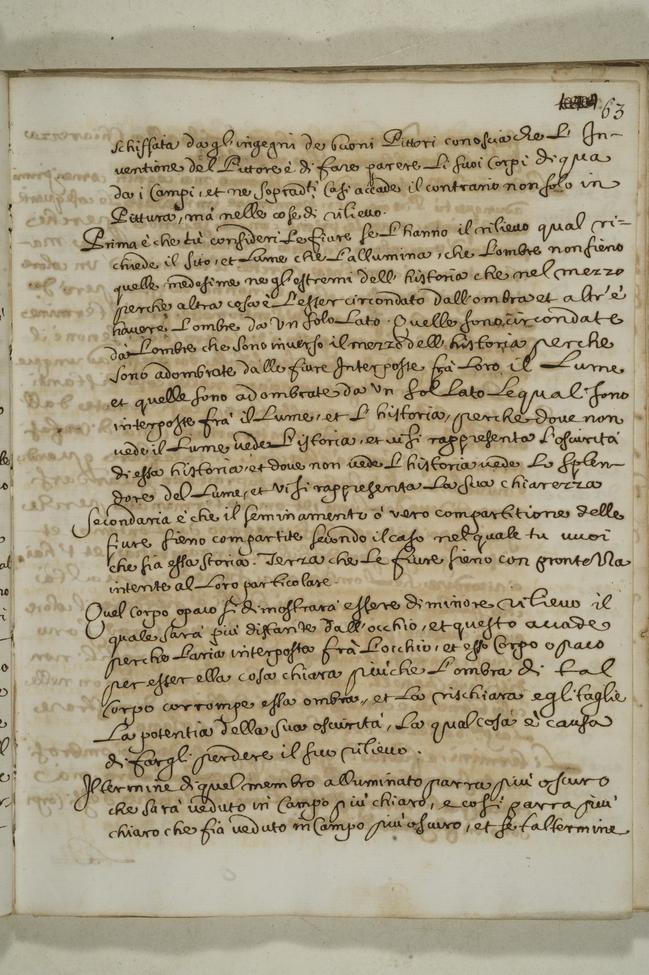 63
schiffata da gl'ingegni de buoni Pittori conosciache L' In-
ventione del Pittore è di fare parere Li suoi Corpi di qua
da i Campi, et ne sopradti Casi accade il contrario non solo in
Pittura, ma nelle cose di rilievo.
Prima è che tù consideri Le fiure se L'hanno il rilievo qual ri-
chiede il sito, et Lume che L'allumina, che L'ombre non sieno
quelle medesime ne gl'estremi dell' historia che nel mezzo
perche altra cosa è L'esser circondato dall'ombra et altr'è
havere L'ombre da Un solo Lato. Quelle sono circondate
da L'ombre che sono inverso il mezzo dell' historia perche
sono adombrate dalle fiure Interposte frà Loro, il Lume
et quelle sono adombrate da Un sol Lato Lequali sono
interposte frà il Lume, et L' historia, perche dove non
vede il Lume vede L'istoria, et vi si rappresenta L'oscurità
di essa historia, et dove non vede L'historia vede Lo Splen-
dore del Lume, et vi si rappresenta La sua chiarezza
Secondaria è che il seminamento ò vero compartitione delle
fiure sieno compartite secondo il caso nel quale tu vuoi
che sia essa storia. Terza che Le fiure sieno con prontezza
intente al Loro particolare.
Quel corpo opaco si dimostrarà essere di minore rilievo il
quale sarà più distante dall'occhio, et questo accade
perche L'aria interposta frà L'occhio, et esso Corpo opaco
per esser ella cosa chiara più che L'ombra di tal
Corpo corrompe essa ombra, et La rischiara e gli taglie
La potentia della sua oscurità, La qual cosa è causa
di fargli perdere il suo rilievo.
Il termine di quel membro alluminato parra più oscuro
che sarà veduto in Campo più chiaro, e così parra più
chiaro che fia veduto in Campo più oscuro, et se tal termine